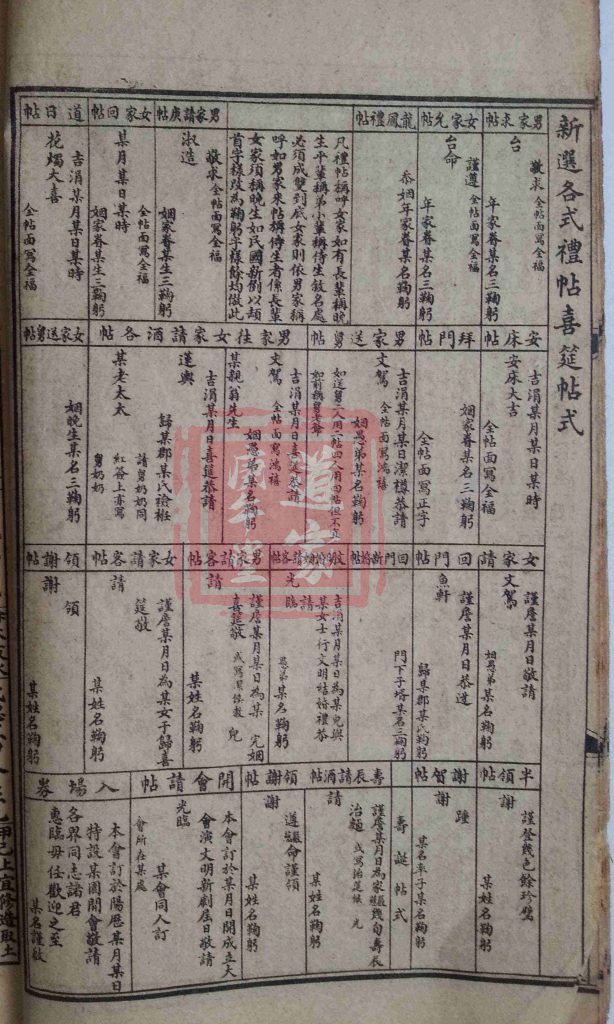 新選各式禮帖喜筵帖式
男家求帖
台
敬求 全帖面寫全福
年家眷某名三鞠躬
女家允帖
謹遵 全帖面寫全福
台命
年家眷某名三鞠躬
龍鳳禮帖
忝姻年家眷某名鞠躬
凡禮帖稱呼女家如有長輩稱晚
生平輩稱弟小輩稱侍生敘名處
必須成雙到底女家則依男家稱
呼如男家來帖稱侍生者係長輩
女家須稱晚生如民國新例以頓
首字樣改為鞠躬字樣餘均倣此
男家請庚帖
敬求 全帖面寫全福
淑造
姻家眷某生三鞠躬
女家回帖
某月某日某時
全帖面寫全福
姻家眷某生三鞠躬
道日帖
吉涓某月某日某時
花燭大喜
全帖面寫全福
安床帖
吉涓某月某日某時
安床大吉
全帖面寫全福
拜門帖
姻家眷某名三鞠躬
全帖面寫正字
男家送舅帖
吉涓某月某日潔樽恭請
文駕 全帖面寫鴻禧
姻愚弟某名鞠躬
如送舅三人用二帖四人用四帖但不宜
如前稱舅老爺
男家往女家請酒各帖
吉涓某月某日喜筵恭請
文駕 全帖面寫鴻禧
姻愚弟某名鞠躬
某親翁先生
吉涓某月日喜筵恭請
蓮輿
歸某郡某氏襝袵
女家送舅帖
請舅奶奶同
某老太太 紅簽上亦寫
舅奶奶
姻晚生某名三鞠躬
女家請回門帖
謹詹某月日敬請
文駕
姻愚弟某名鞠躬
謹詹某月日恭迓
魚軒
歸某郡某氏鞠躬
回門新婿帖
門下子壻某名三鞠躬
吉涓某月某日為某兒與
某女士行文明結婚禮恭
請
光臨
愚弟某名鞠躬
男家請客帖
謹詹某月日為某 兒 完姻
喜筵敬
請
某姓名鞠躬
女家請客帖
謹詹某月日為某女于歸喜
筵敬
請
某姓名鞠躬
領謝帖
領
謝
某姓名鞠躬
半領帖
謹登幾色餘珍璧
謝
某姓名鞠躬
謝賀帖
踵
謝
某名率子某名鞠躬
壽誕帖式
壽長請酒帖
謹詹某月日為家嚴慈幾旬壽辰
治麵
請
某姓名鞠躬
領謝帖
遵嚴慈命謹領
謝
某姓名鞠躬
開會請帖
本會訂於某月日開成立大
會演文明新劇屆日敬請
光臨
某會同人訂
會所在某處
入場券
本會訂於陽歷某月某日
特設某園開會敬請
各界同志諸君
惠臨毋任歡迎之至
某名謹啟
道家
堂